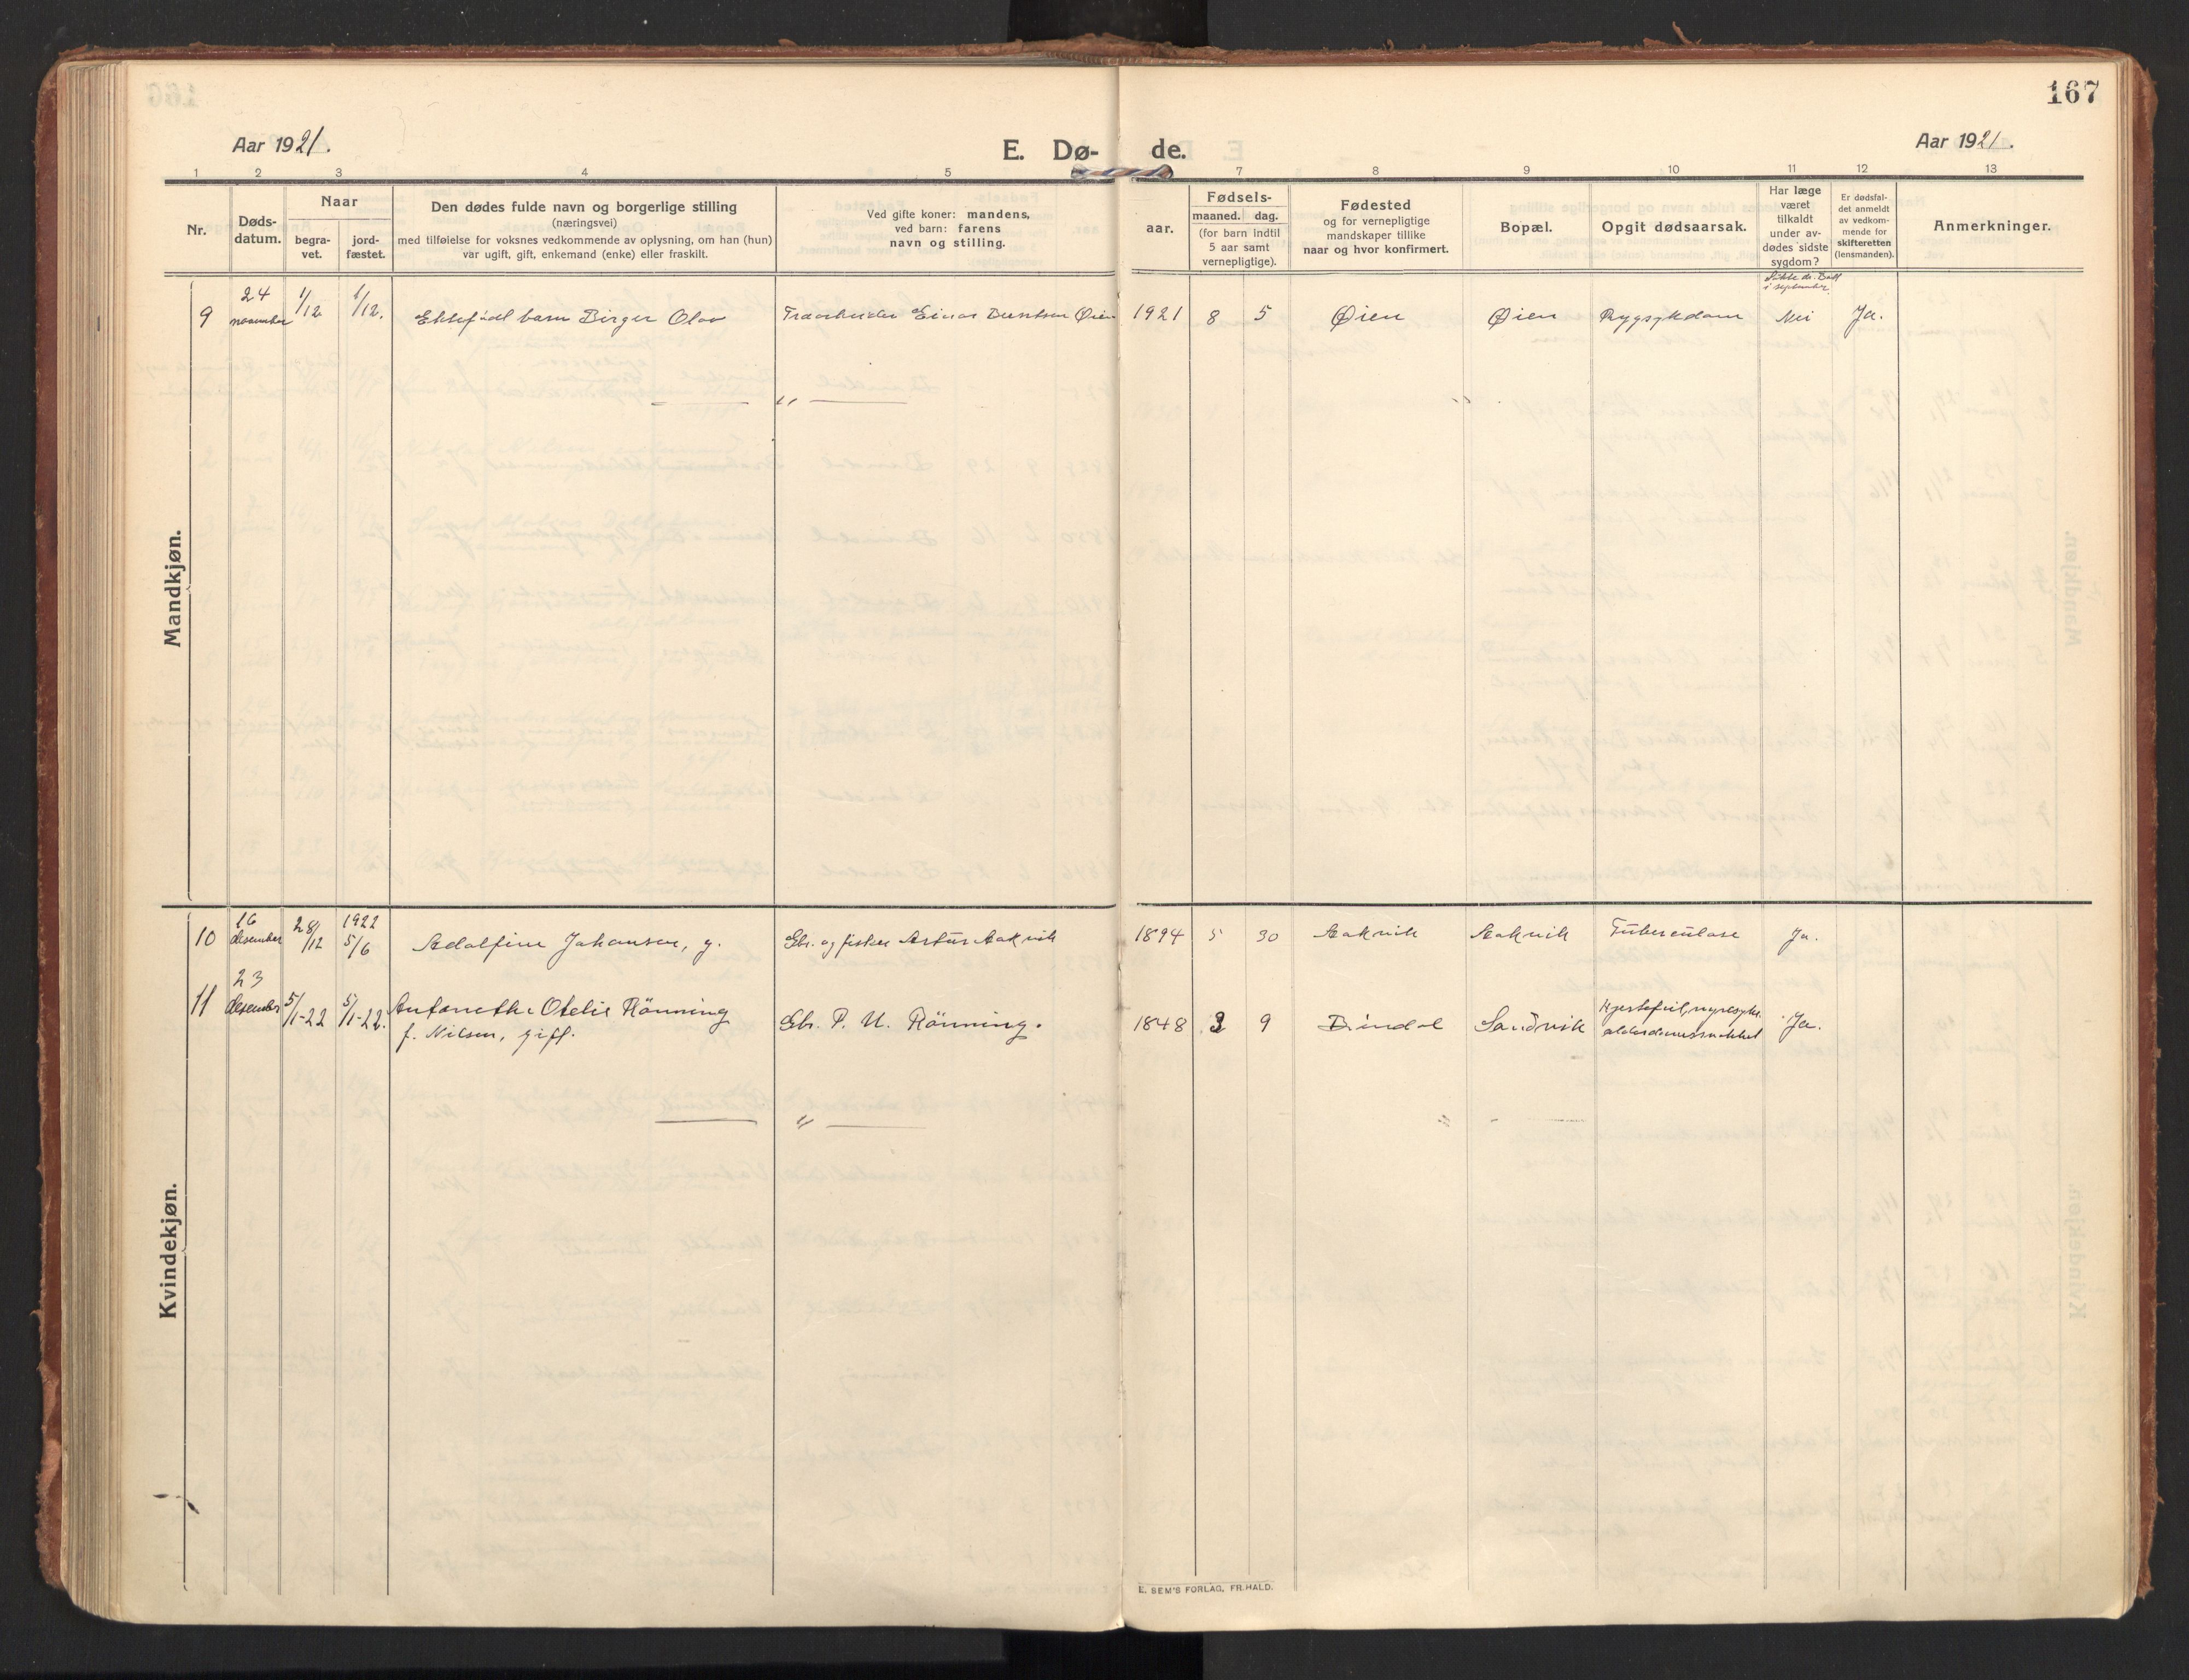 167
Aar 1921.
E. Dø-
de.
Aar 1921.
1 2 3 4 5 7 8 9 10 11 12 13
Nr.
Døds-
datum.
Naar
begra-
vet.
jord-
fæstet.
Den dødes fulde navn og borgerlige stilling
(næringsvei)
med tilføielse for voksnes vedkommende av oplysning, om han (hun)
var ugift, gift, enkemand (enke) eller fraskilt.
Ved gifte koner: mandens,
ved barn: farens
navn og stilling.
aar.
Fødsels-
maaned. dag.
(for barn indtil
5 aar samt
vernepligtige).
Fødested
og for vernepligtige
mandskaper tillike
naar og hvor konfirmert.
Bopæl.
Opgit dødsaarsak.
Har læge
været
tilkaldt
under av-
dødes sidste
sygdom?
Er dødsfal-
det anmeldt
av vedkom-
mende for
skifteretten
(lensmanden).
Anmerkninger.
Mandkjøn.
9
24
november
1/12
1/12.
Ektefødt barn Birger Olav
Einar Øien
1921
8
5
Øien
Øien
Rygsykdom
i september
Nei
Ja.
Kvindekjøn.
10
16
desember
28/12
1922
5/6
Adolfine Johansen, g.
Gbr. og fisker Aakvik
1894
5
30
Aakvik
Aakvik
Tuberculose
Ja.
11
23
desember
5/1-22
5/1-22.
Antonethe Otelie Rönning
f. Nilsen, gift.
Gbr. P. U. Rönning.
1848
3
9
Bindal
Sandvik
Hjertefeil, nyresyke.
alderdomssvakhet
Ja.
E. SEM'S FORLAG, FR.HALD.